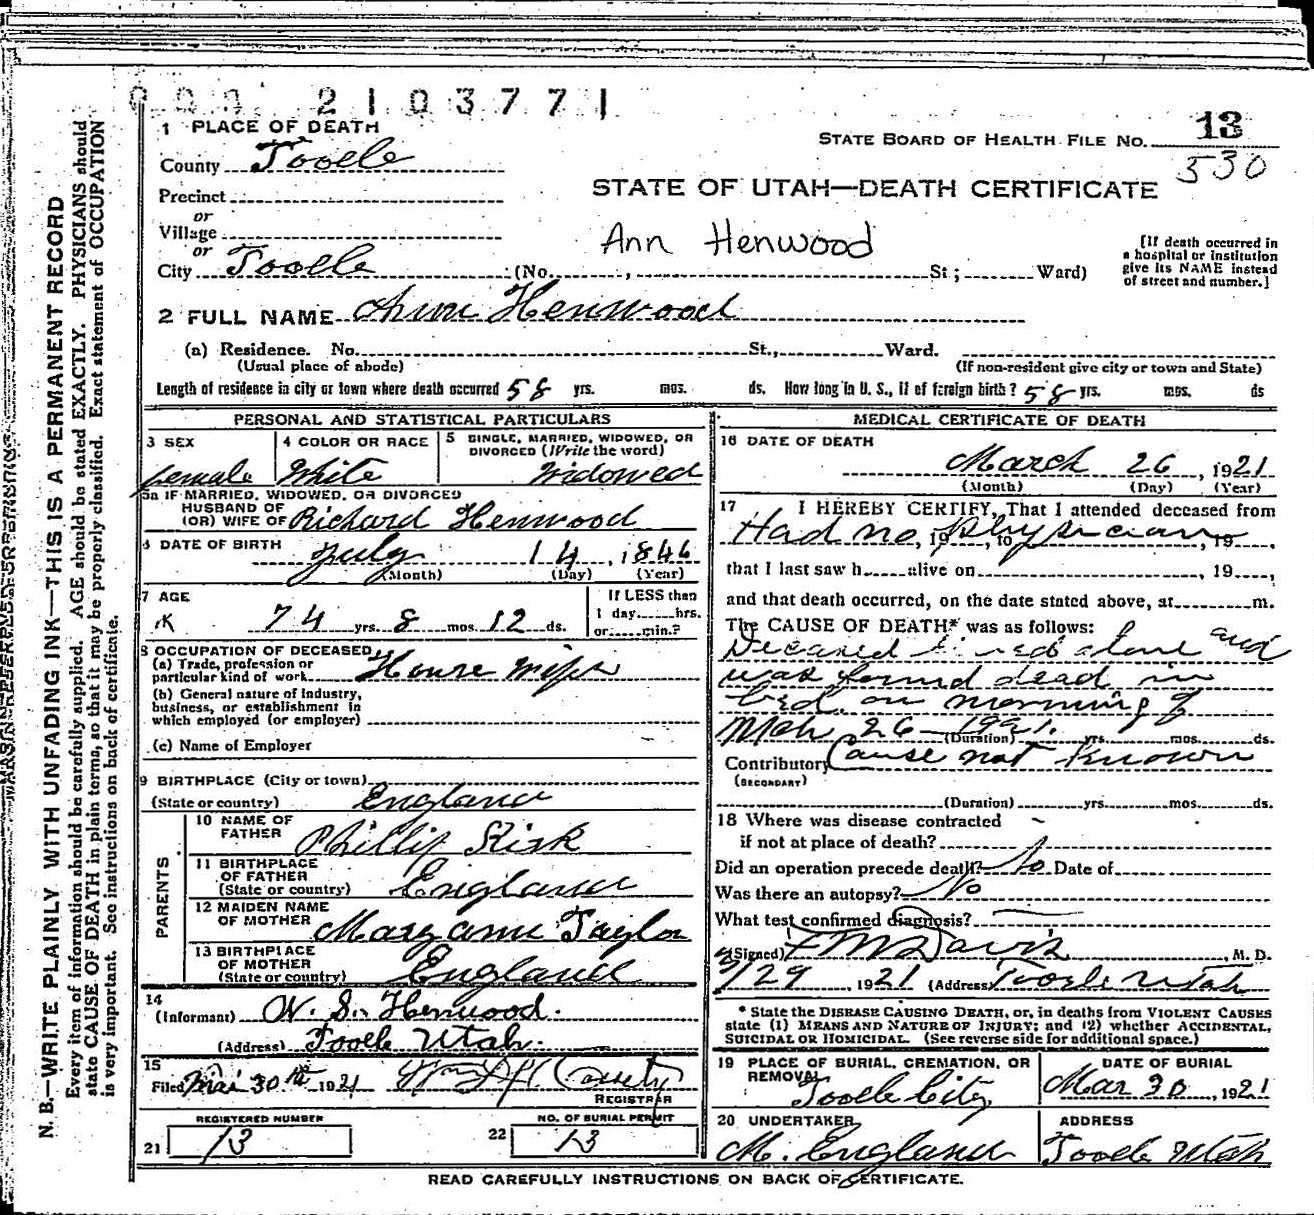 2103771
1 PLACE OF DEATH
STATE BOARD OF HEALTH FILE NO. 13
County Tooele
530
STATE OF UTAH—DEATH CERTIFICATE
Precinct
or
Village
or
Ann Henwood
[If death occurred in a hospital or institution give its NAME instead of street and number.]
City Tooele (No. , St; Ward)
2 FULL NAME Ann Henwood
(a) Residence. No. St., Ward.
(Usual place of abode) (If non-resident give city or town and State)
Length of residence in city or town where death occurred 58 yrs. mos. ds. How long in U. S., if of foreign birth? 58 yrs. mos. ds
PERSONAL AND STATISTICAL PARTICULARS
3 SEX
female
4 COLOR OR RACE
White
5 SINGLE, MARRIED, WIDOWED, OR DIVORCED (Write the word)
Widowed
5a IF MARRIED, WIDOWED, OR DIVORCED
HUSBAND OF
(OR) WIFE OF Richard Henwood
6 DATE OF BIRTH July 14, 1846
(Month) (Day) (Year)
7 AGE
74 yrs. 8 mos. 12 ds.
If LESS than
1 day hrs.
or min.?
8 OCCUPATION OF DECEASED
(a) Trade, profession or
particular kind of work House wife
(b) General nature of industry,
business, or establishment in
which employed (or employer)
(c) Name of Employer
9 BIRTHPLACE (City or town)
(State or country) England
PARENTS
10 NAME OF
FATHER Phillip Kirk
11 BIRTHPLACE
OF FATHER
(State or country) England
12 MAIDEN NAME
OF MOTHER Mary ann Taylor
13 BIRTHPLACE
OF MOTHER
(State or country) England
14
(Informant) W. S. Henwood.
(Address) Tooele Utah.
15
Filed Mar 30th 1921
REGISTRAR
REGISTERED NUMBER
21 13
NO. OF BURIAL PERMIT
22 13
MEDICAL CERTIFICATE OF DEATH
16 DATE OF DEATH
March 26, 1921
(Month) (Day) (Year)
17 I HEREBY CERTIFY, That I attended deceased from
Had no physician, 19 , to , 19 ,
that I last saw h alive on , 19 ,
and that death occurred, on the date stated above, at m.
The CAUSE OF DEATH* was as follows:
Deceased lived alone and
was found dead in
bed on morning of
Mch 26—1921.
(Duration) yrs. mos. ds.
Contributory Cause not known
(SECONDARY)
(Duration) yrs. mos. ds.
18 Where was disease contracted
if not at place of death?
Did an operation precede death? No Date of
Was there an autopsy? No
What test confirmed diagnosis?
(Signed) F M Davis, M. D.
3/29, 1921 (Address) Tooele Utah
* State the DISEASE CAUSING DEATH, or, in deaths from VIOLENT CAUSES
state (1) MEANS AND NATURE OF INJURY; and (2) whether ACCIDENTAL,
SUICIDAL OR HOMICIDAL. (See reverse side for additional space.)
19 PLACE OF BURIAL, CREMATION, OR
REMOVAL
Tooele City
DATE OF BURIAL
Mar 30, 1921
20 UNDERTAKER
M. England
ADDRESS
Tooele Utah
READ CAREFULLY INSTRUCTIONS ON BACK OF CERTIFICATE.
MARGIN RESERVED FOR BINDING
N. B.—WRITE PLAINLY WITH UNFADING INK—THIS IS A PERMANENT RECORD
Every item of information should be carefully supplied. AGE should be stated EXACTLY. PHYSICIANS should
state CAUSE OF DEATH in plain terms, so that it may be properly classified. Exact statement of OCCUPATION
is very important. See instructions on back of certificate.